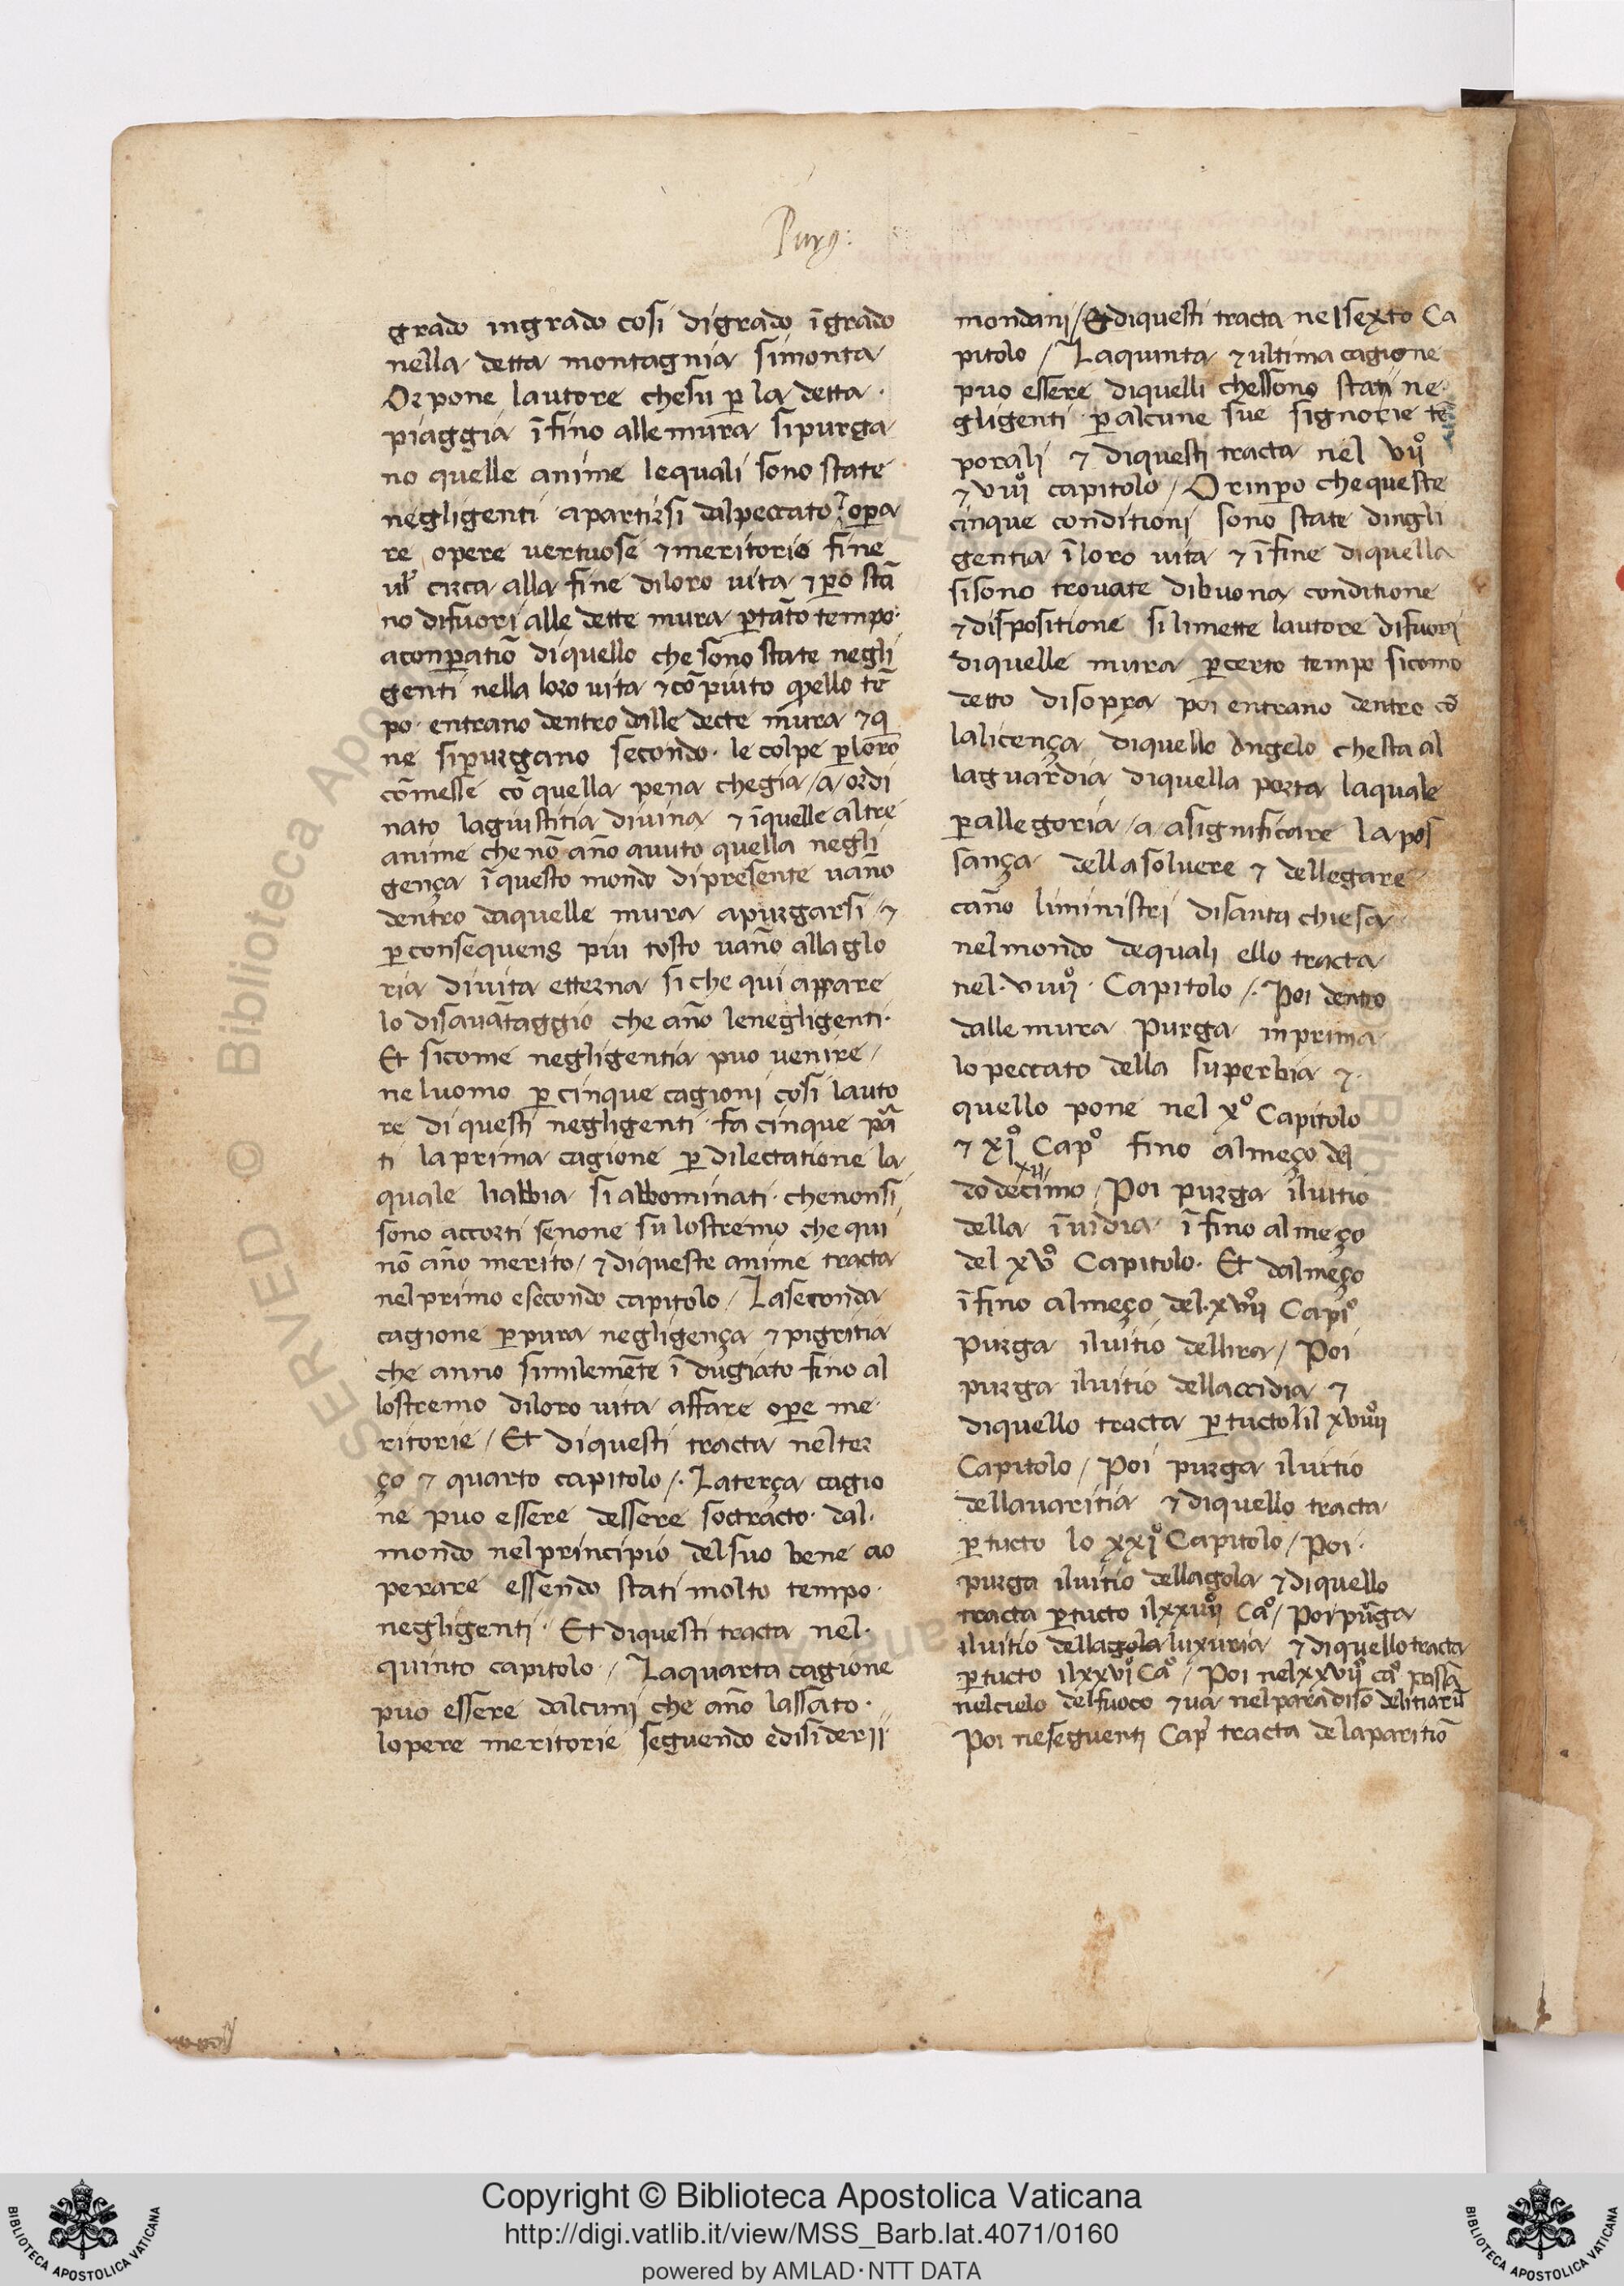 Purg:
grado ingrado cosi digrado ĩgrado
nella detta montagnia simonta
Or pone lautore chesu p̲ la detta ·
piaggia ĩfino alle mura sipurga
no quelle anime lequali sono state
negligenti apartirsi dalpeccato ⁊ op̲a
re opere vertuose ⁊ meritorie fine
vl̃ circa alla fine diloro vita ⁊ p̲o stã
no difuori alle dette mura p̲ tãto tempo ·
aconp̲atiõ diquello che sono state negli
genti nella loro vita ⁊ cõpiuto q̃llo tẽ
po · entrano dentro dalle decte mura ⁊ q̃
ne sipurgano secondo · le colpe p̲ loro
cõmesse cõ quella pena chegia / a ordi
nato lagiustitia divina ⁊ ĩquelle altre
anime che nõ ãno avuto quella negli
gença ĩ questo mondo dipresente vãno
dentro daquelle mura apurgarsi ⁊
p̲ consequens piu tosto vãno alla glo
ria divita etterna siche qui appare
lo disavãtaggio che ãno lenegligenti ·
Et sicome negligentia puo venire /
neluomo p̲ cinque cagioni cosi lauto
re di questi negligenti fa cinque pa̲
ti la prima cagione p̲ dilectatione la
quale habbia si abbominati · chenonsi
sono accorti senone su lostremo che qui
nõ ãno merito / ⁊ diqueste anime tracta
nelprimo esecondo capitolo / Laseconda
cagione p̲ pura negligença ⁊ pigritia
che anno similemẽte ĩ dugiato fino al
lostremo diloro vita affare op̲e me
ritorie / Et diquesti tracta nelter
ço ⁊ quarto capitolo /. Laterça cagio
ne puo essere dessere soctracto · dal ·
mondo nelprincipio delsuo bene ao
perare essendo stati molto tempo ·
negligenti · Et diquesti tracta nel ·
quinto capitolo / Laquarta cagione
puo essere dalcuni che ãno lassato ·
lopere meritorie seguendo edisiderii
mondani / Et diquesti tracta nelsexto Ca
pitolo / Laquinta ⁊ ultima cagione
puo essere diquelli chessono stati ne ·
gligenti p̲ alcune sue signorie tẽ
porali ⁊ diquesti tracta nel vijº
⁊ viijº capitolo / Or inp̲o che queste
cinque conditioni sono state dingli
gentia ĩ loro vita ⁊ ĩ fine diquella
sisono trovate dibuona conditione
⁊ dispositione si limette lautore difuori
diquelle mura p̲ certo tempo sicomo
detto disopra poi entrano dentro cõ
lalicença diquello Angelo chesta al
laguardia diquella porta laquale
p̲ allegoria / a asignificare la pos
sança dellasolvere ⁊ dellegare
cãno liministri disanta chiesa
nelmondo dequali ello tracta
nel · viiij · Capitolo /. Poi dentro
dalle mura purga in prima
lo peccato della superbia ⁊ ·
quello pone nel xº Capitolo
⁊ xjº Capº fino almeço del
xij
dodecimo / Poi purga iluitio
della ĩuidia ĩfino almeço
del xvº Capitolo · Et dalmeço
ĩfino almeço del · xvijº Capiº
purga iluitio dellira / Poi
purga iluitio dellaccidia ⁊
diquello tracta p̲ tucto lil xviijº
Capitolo / Poi purga iluitio
dellavaritia ⁊ diquello tracta
p̲ tucto lo xxjº Capitolo / Poi ·
purga iluitio dellagola ⁊ diquello
tracta p̲ tucto ilxxiiijº Caº / Poi purga
iluitio dellagola luxuria ⁊ diquello tracta
p̲ tucto ilxxviº Caº / Poi nelxxvijº caº passa
nelcielo delfuoco ⁊ va nelparadiso delitiarũ
Poi neseguenti Capi tracta delaparitiõ
Copyright © Biblioteca Apostolica Vaticana
http://digi.vatlib.it/view/MSS_Barb.lat.4071/0160
powered by AMLAD·NTT DATA
BIBLIOTECA APOSTOLICA VATICANA
BIBLIOTECA APOSTOLICA VATICANA